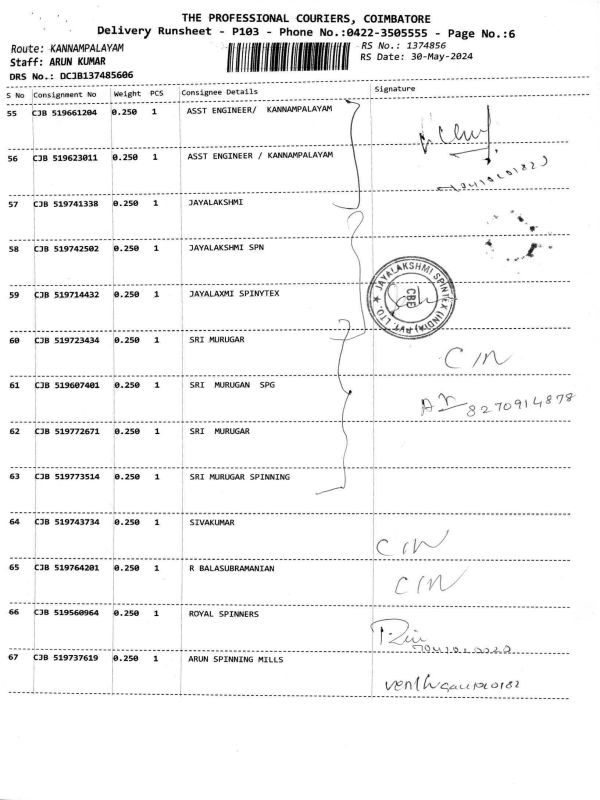 THE PROFESSIONAL COURIERS, COIMBATORE
Delivery Runsheet - P103 - Phone No.:0422-3505555 - Page No.:6
Route: KANNAMPALAYAM
RS No.: 1374856
Staff: ARUN KUMAR
RS Date: 30-May-2024
DRS No.: DCJB137485606
S No Consignment No Weight PCS Consignee Details Signature
55 CJB 519661204 0.250 1 ASST ENGINEER/ KANNAMPALAYAM
56 CJB 519623011 0.250 1 ASST ENGINEER / KANNAMPALAYAM
57 CJB 519741338 0.250 1 JAYALAKSHMI
58 CJB 519742502 0.250 1 JAYALAKSHMI SPN
59 CJB 519714432 0.250 1 JAYALAXMI SPINYTEX
JAYALAKSHMI SPINTEX (INDIA) PVT. LTD. CBE
60 CJB 519723434 0.250 1 SRI MURUGAR
C/N
61 CJB 519607401 0.250 1 SRI MURUGAN SPG
8270914878
62 CJB 519772671 0.250 1 SRI MURUGAR
63 CJB 519773514 0.250 1 SRI MURUGAR SPINNING
64 CJB 519743734 0.250 1 SIVAKUMAR
C/N
65 CJB 519764201 0.250 1 R BALASUBRAMANIAN
C/N
66 CJB 519560964 0.250 1 ROYAL SPINNERS
67 CJB 519737619 0.250 1 ARUN SPINNING MILLS